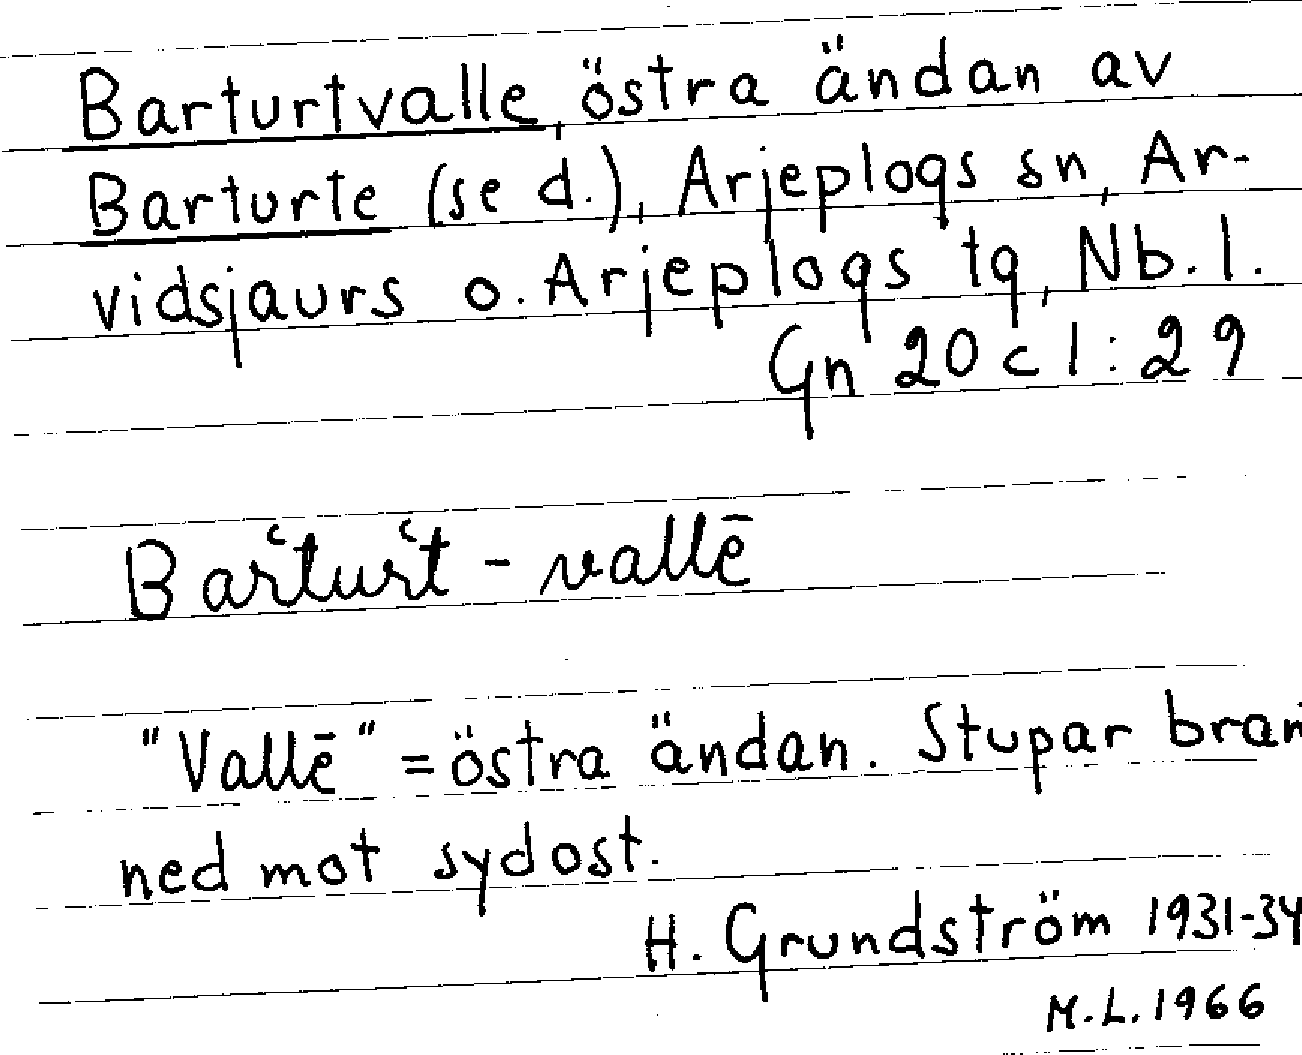 Barturtvalle, östra ändan av
Barturte (se d.), Arjeplogs sn, Ar-
vidsjaurs o. Arjeplogs tg, Nb. l.
Gn 20 c 1 : 29
Barʿturʿt - vallē
"Vallē" = östra ändan. Stupar bran
ned mot sydost.
H. Grundström 1931-34
M.L. 1966